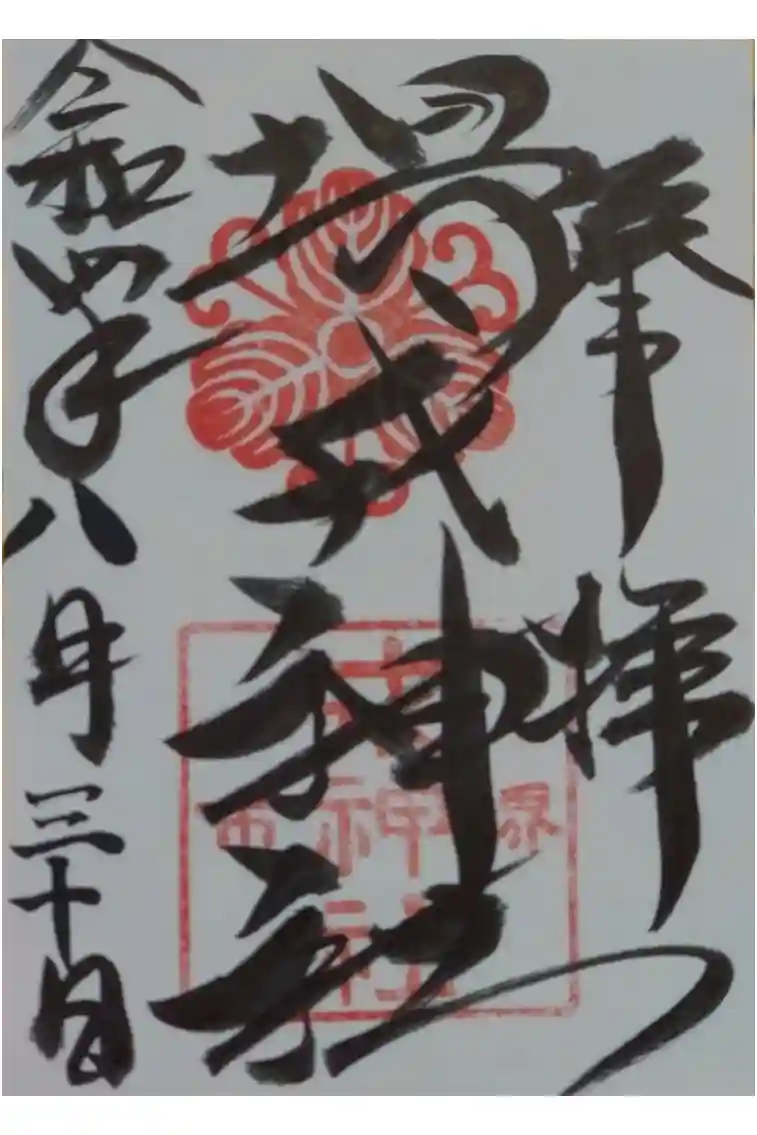 奉拝
堺戎神社
令和四年八月三十日
神社